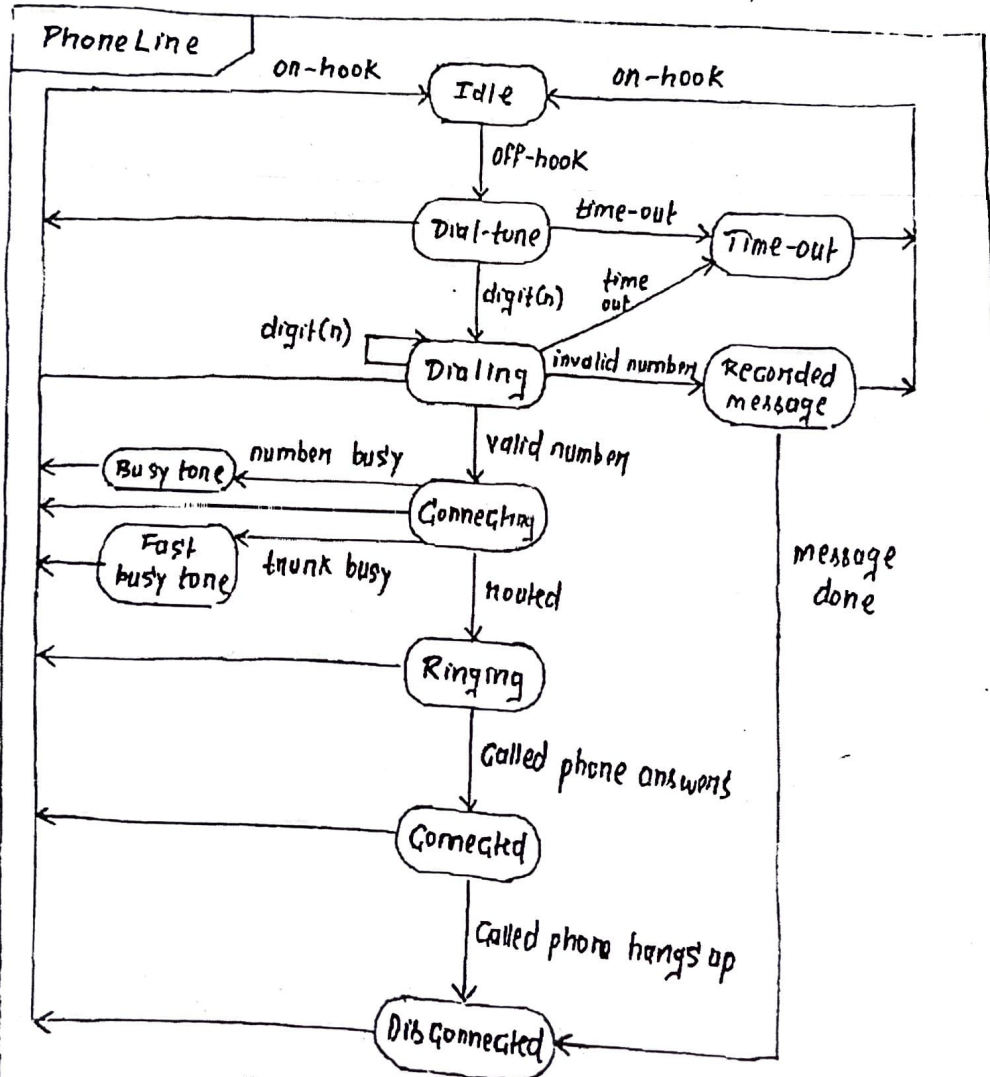 Phone Line
on-hook
Idle
on-hook
off-hook
Dial-tone
time-out
Time-out
digit(n)
time
out
digit(n)
Dialing
invalid number
Recorded
message
valid number
Busy tone
number busy
Connecting
Fast
busy tone
trunk busy
message
done
routed
Ringing
Called phone answers
Connected
Called phone hangs up
Disconnected